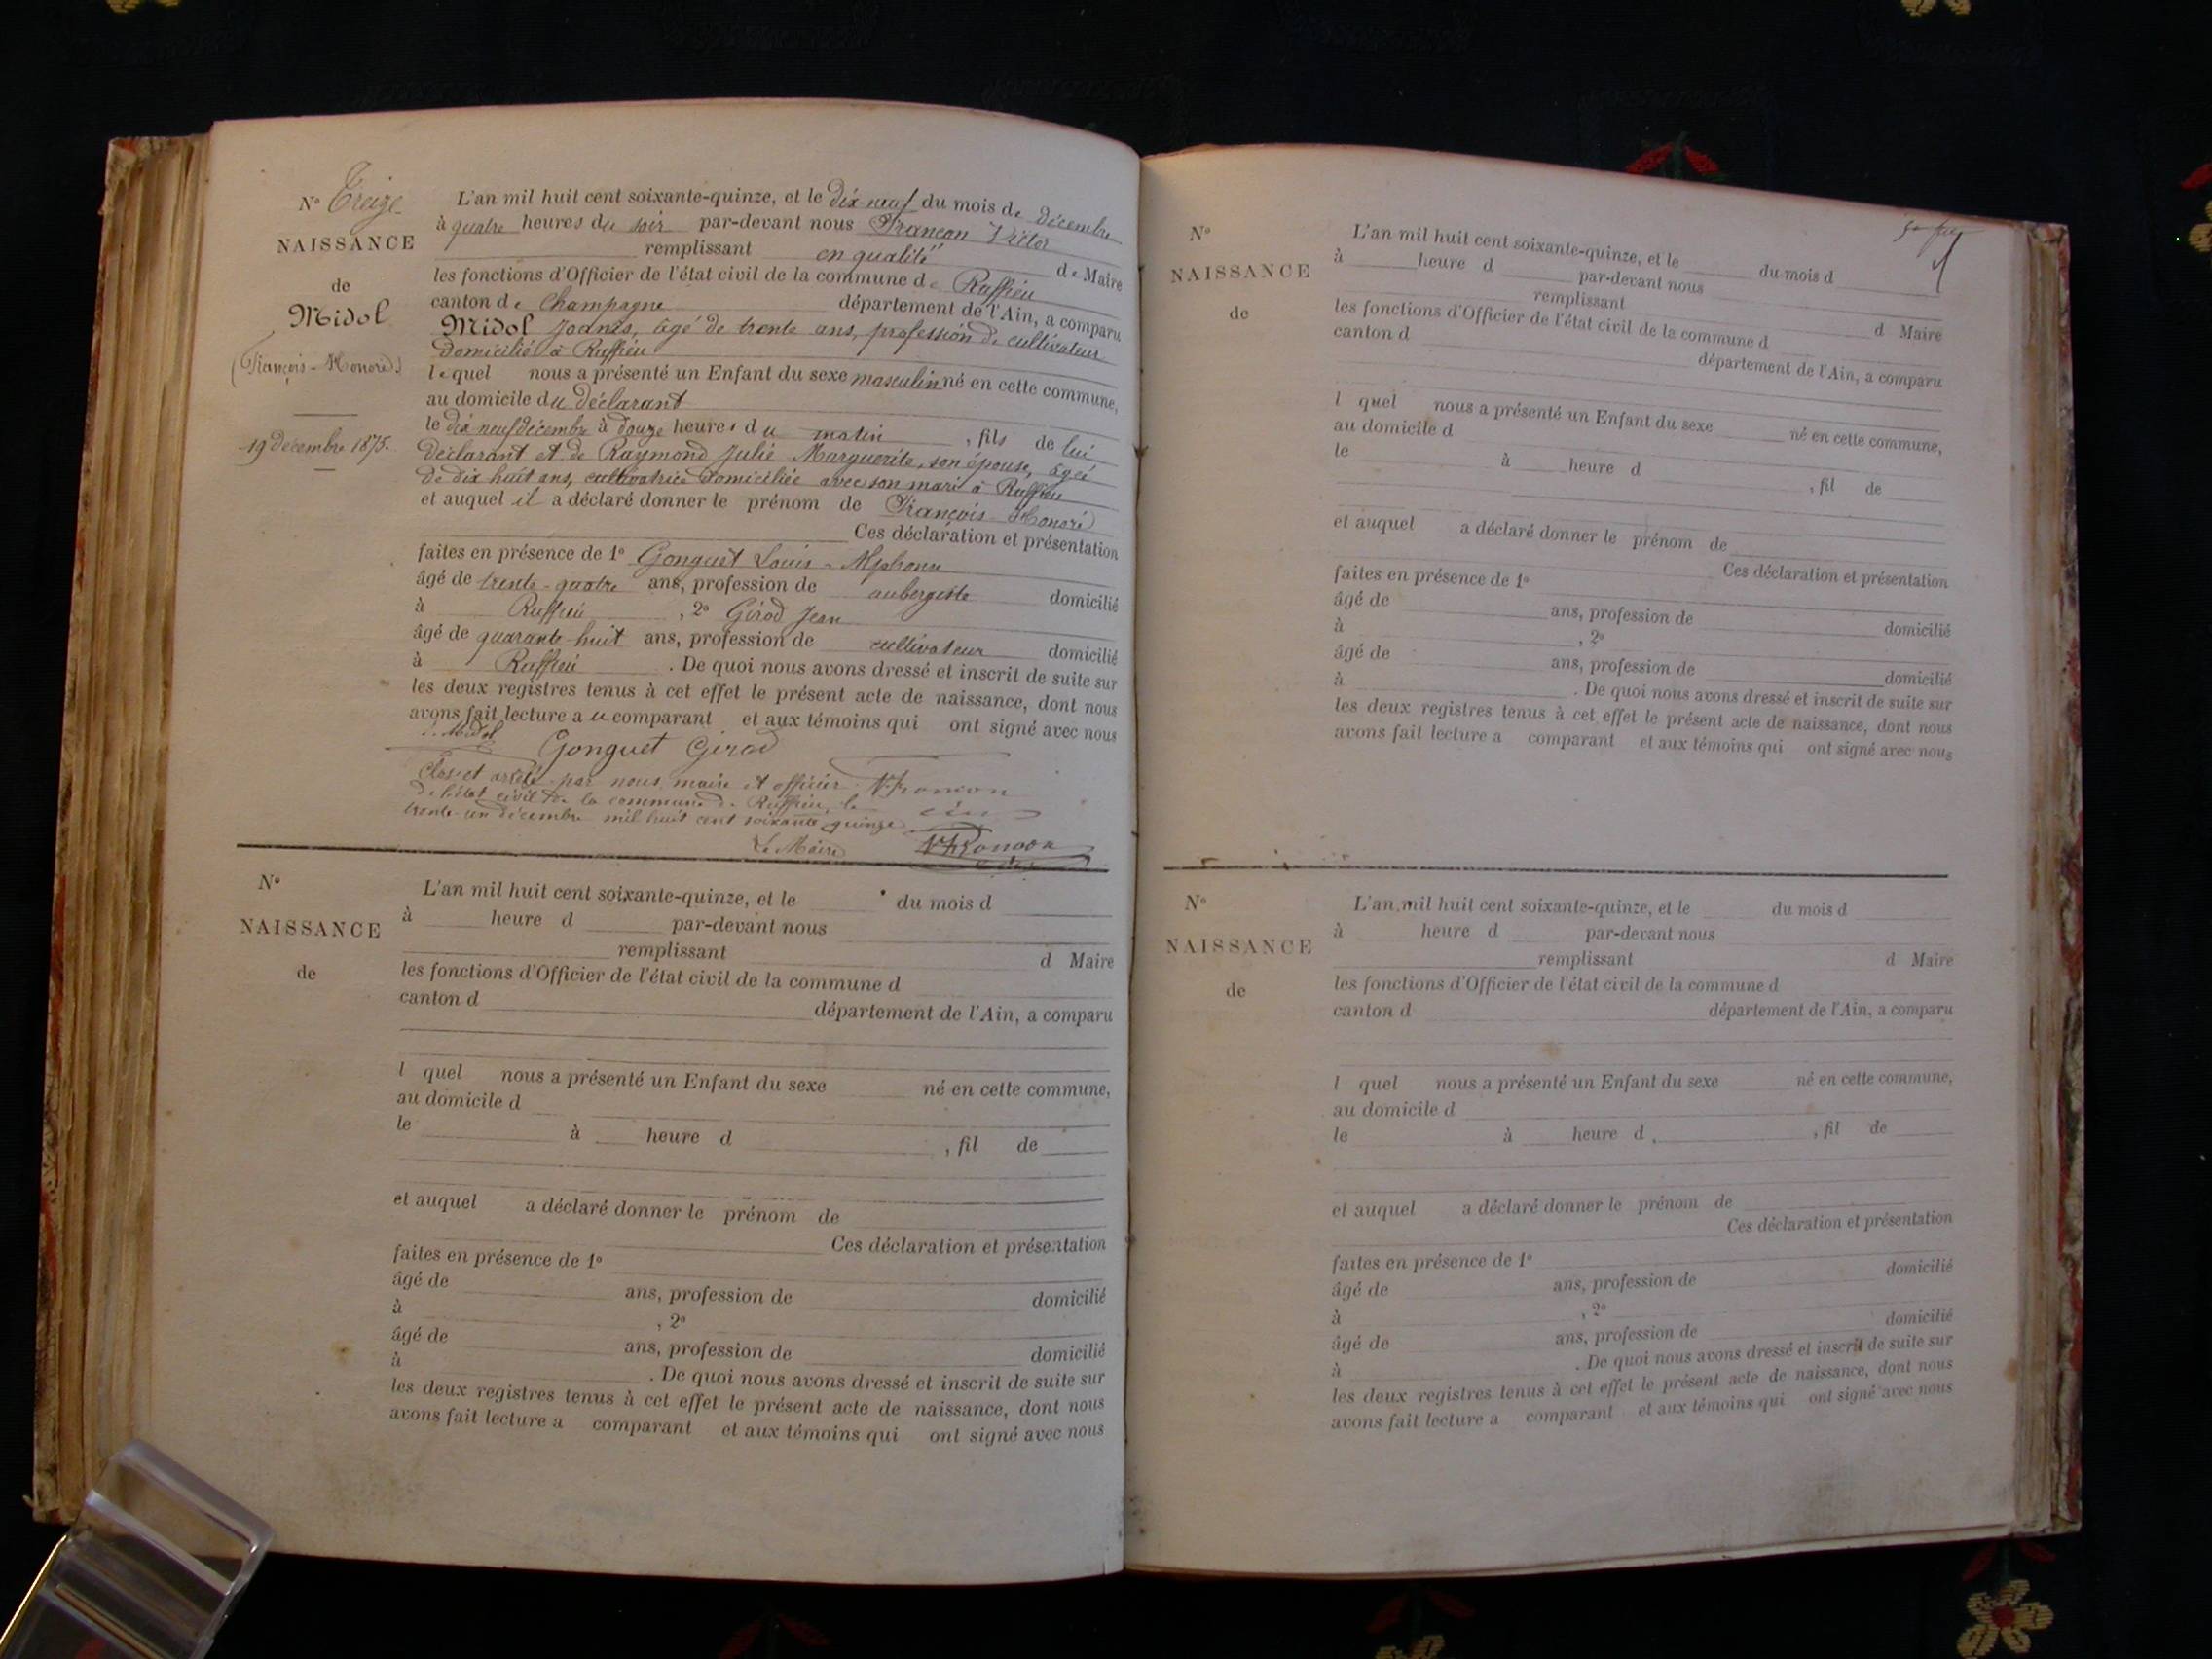 N° Treize
NAISSANCE
de
Midol
(François-Honoré)
19 décembre 1875.
L'an mil huit cent soixante-quinze, et le dix-neuf du mois de décembre
à quatre heures du soir par-devant nous Francon Victor
remplissant en qualité de Maire
les fonctions d'Officier de l'état civil de la commune de Ruffieu
canton de Champagne département de l'Ain, a comparu
Midol Joanès, âgé de trente ans, profession de cultivateur
domicilié à Ruffieu
lequel nous a présenté un Enfant du sexe masculin né en cette commune,
au domicile du déclarant
le dix neuf décembre à douze heures du matin, fils de lui
déclarant et de Raymond Julie Marguerite, son épouse, âgée
de dix huit ans, cultivatrice domiciliée avec son mari à Ruffieu
et auquel il a déclaré donner le prénom de François-Honoré
Ces déclaration et présentation
faites en présence de 1° Gonguet Louis-Alphonse
âgé de trente-quatre ans, profession de aubergiste domicilié
à Ruffieu, 2° Girod Jean
âgé de quarante-huit ans, profession de cultivateur domicilié
à Ruffieu. De quoi nous avons dressé et inscrit de suite sur
les deux registres tenus à cet effet le présent acte de naissance, dont nous
avons fait lecture au comparant et aux témoins qui ont signé avec nous
Midol Gonguet Girod
Clos et arrêté par nous maire et officier V. Francon
de l'état civil de la commune de Ruffieu, le
trente-un décembre mil huit cent soixante quinze
Le Maire V. Francon
N°
NAISSANCE
de
L'an mil huit cent soixante-quinze, et le du mois d
à heure d par-devant nous
remplissant d Maire
les fonctions d'Officier de l'état civil de la commune d
canton d département de l'Ain, a comparu
l quel nous a présenté un Enfant du sexe né en cette commune,
au domicile d
le à heure d , fil de
et auquel a déclaré donner le prénom de
Ces déclaration et présentation
faites en présence de 1°
âgé de ans, profession de domicilié
à , 2°
âgé de ans, profession de domicilié
à . De quoi nous avons dressé et inscrit de suite sur
les deux registres tenus à cet effet le présent acte de naissance, dont nous
avons fait lecture a comparant et aux témoins qui ont signé avec nous
N°
NAISSANCE
de
L'an mil huit cent soixante-quinze, et le du mois d
à heure d par-devant nous
remplissant d Maire
les fonctions d'Officier de l'état civil de la commune d
canton d département de l'Ain, a comparu
l quel nous a présenté un Enfant du sexe né en cette commune,
au domicile d
le à heure d , fil de
et auquel a déclaré donner le prénom de
Ces déclaration et présentation
faites en présence de 1°
âgé de ans, profession de domicilié
à , 2°
âgé de ans, profession de domicilié
à . De quoi nous avons dressé et inscrit de suite sur
les deux registres tenus à cet effet le présent acte de naissance, dont nous
avons fait lecture a comparant et aux témoins qui ont signé avec nous
N°
NAISSANCE
de
L'an mil huit cent soixante-quinze, et le du mois d
à heure d par-devant nous
remplissant d Maire
les fonctions d'Officier de l'état civil de la commune d
canton d département de l'Ain, a comparu
l quel nous a présenté un Enfant du sexe né en cette commune,
au domicile d
le à heure d , fil de
et auquel a déclaré donner le prénom de
Ces déclaration et présentation
faites en présence de 1°
âgé de ans, profession de domicilié
à , 2°
âgé de ans, profession de domicilié
à . De quoi nous avons dressé et inscrit de suite sur
les deux registres tenus à cet effet le présent acte de naissance, dont nous
avons fait lecture a comparant et aux témoins qui ont signé avec nous